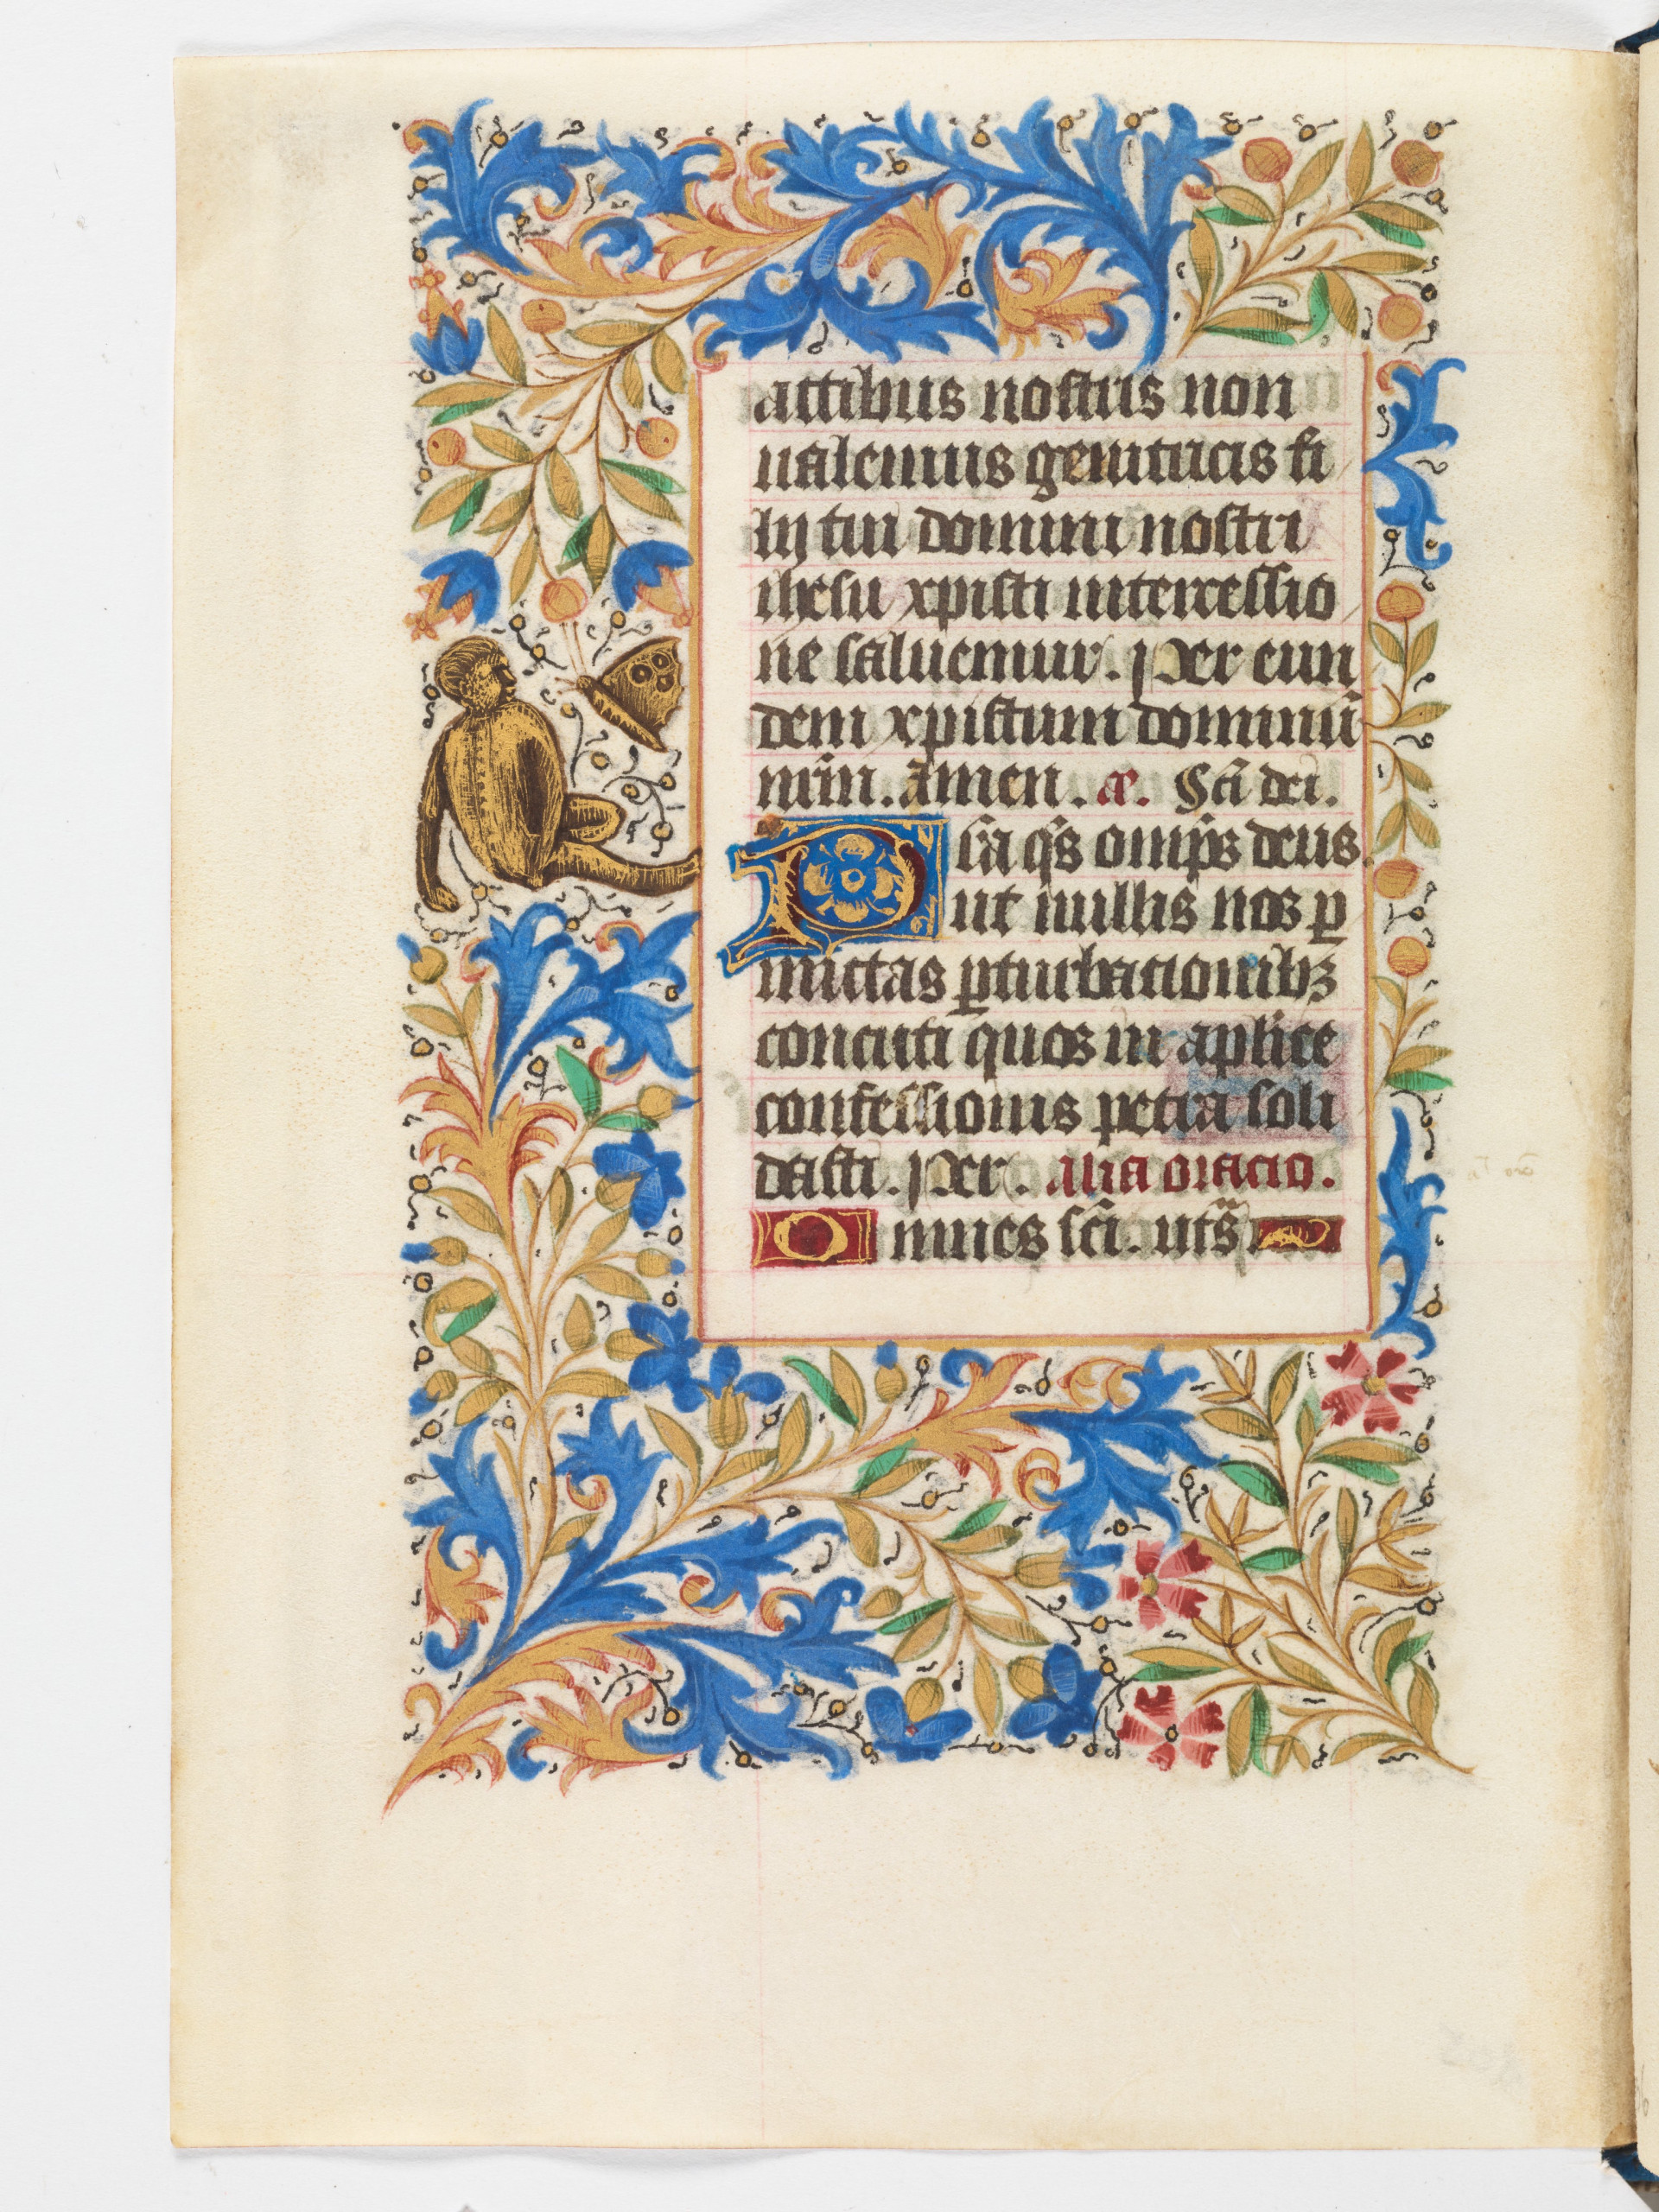 actibus nostris non
ualemus genitricis fi
lij tui domini nostri
ihesu xpisti intercessio
ne saluemur. Per eun
dem xpistum dominū
nr̄m. amen. or̄. Sc̄i dei.
P sta q̄s om̄ps deus
ut nullis nos p
mittas pturbationibz
concuti quos in aplice
confessionis petra soli
dasti. Per. Alia oracio.
O mnes sc̄i. ut s̄